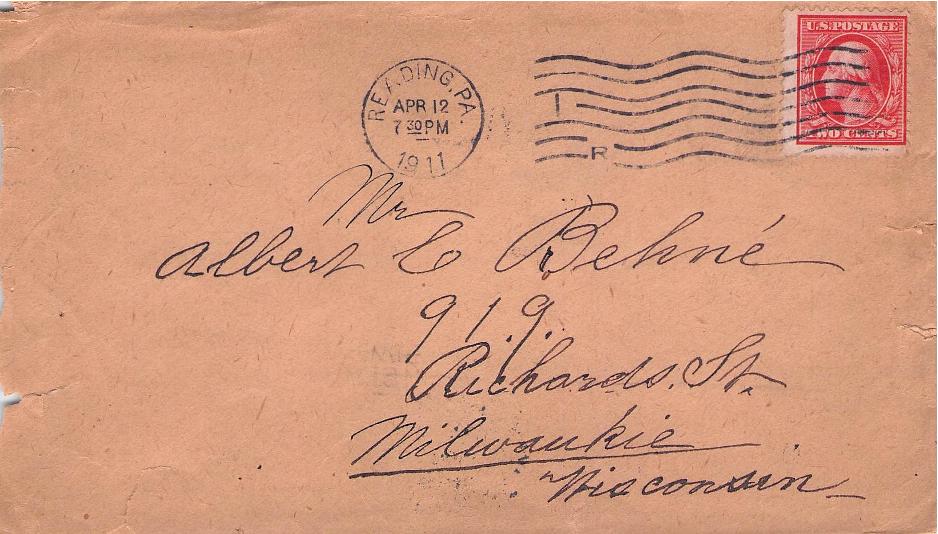 U.S. POSTAGE
TWO CENTS
READING, PA.
APR 12
7 30 PM
1911
I
R
Mr
Albert C Behné
919
Richards. St.
Milwaukie
Wisconsin